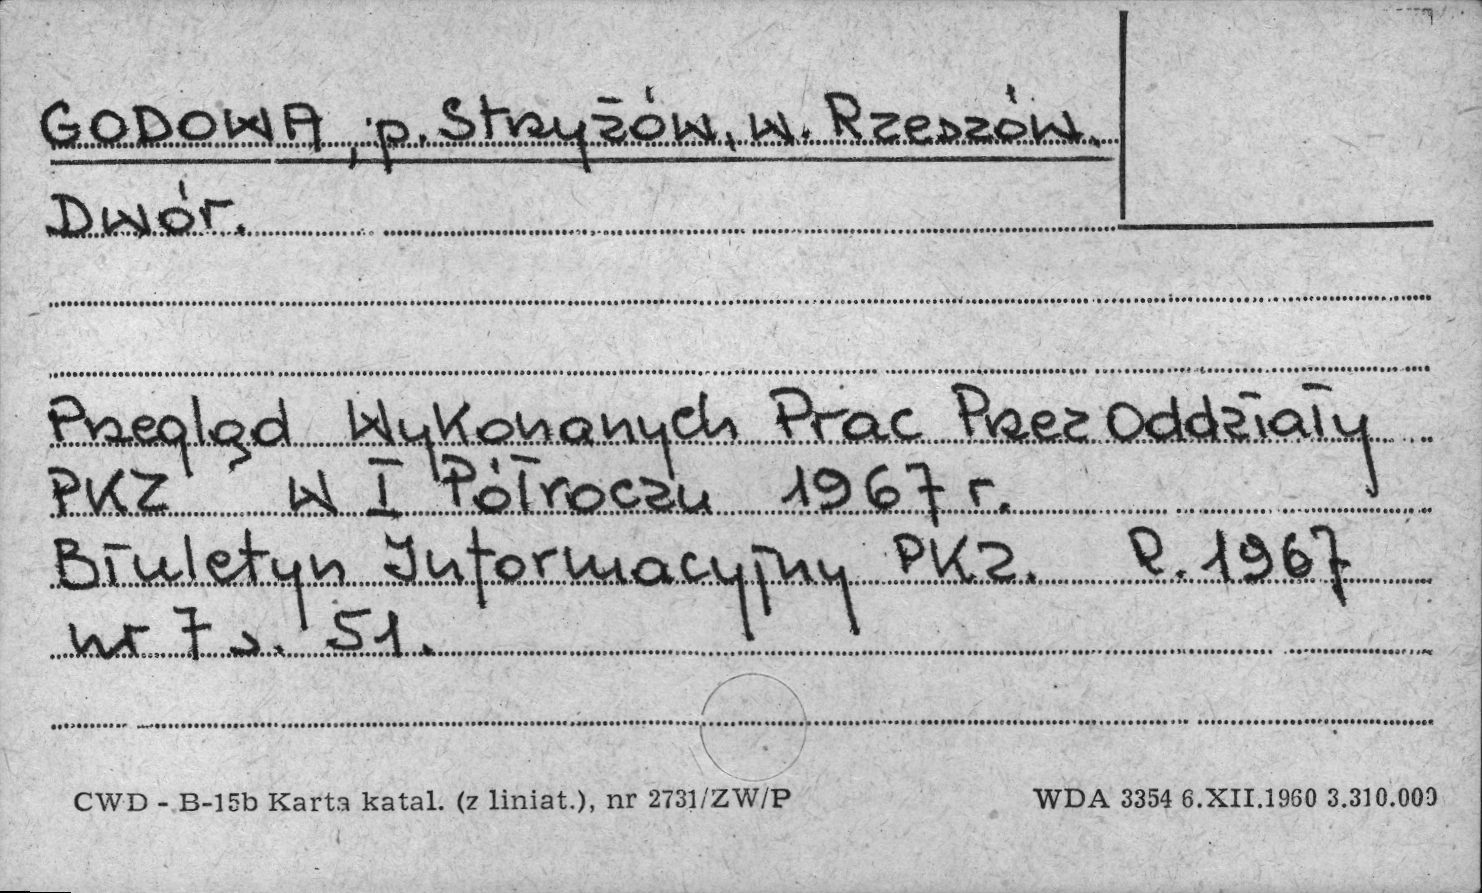 GODOWA, p. Strzyżów, w. Rzeszów.
Dwór.
Przegląd Wykonanych Prac Przez Oddziały
PKZ w I Półroczu 1967 r.
Biuletyn Informacyjny PKZ. R. 1967
nr 7 s. 51.
CWD - B-15b Karta katal. (z liniat.), nr 2731/ZW/P
WDA 3354 6.XII.1960 3.310.000